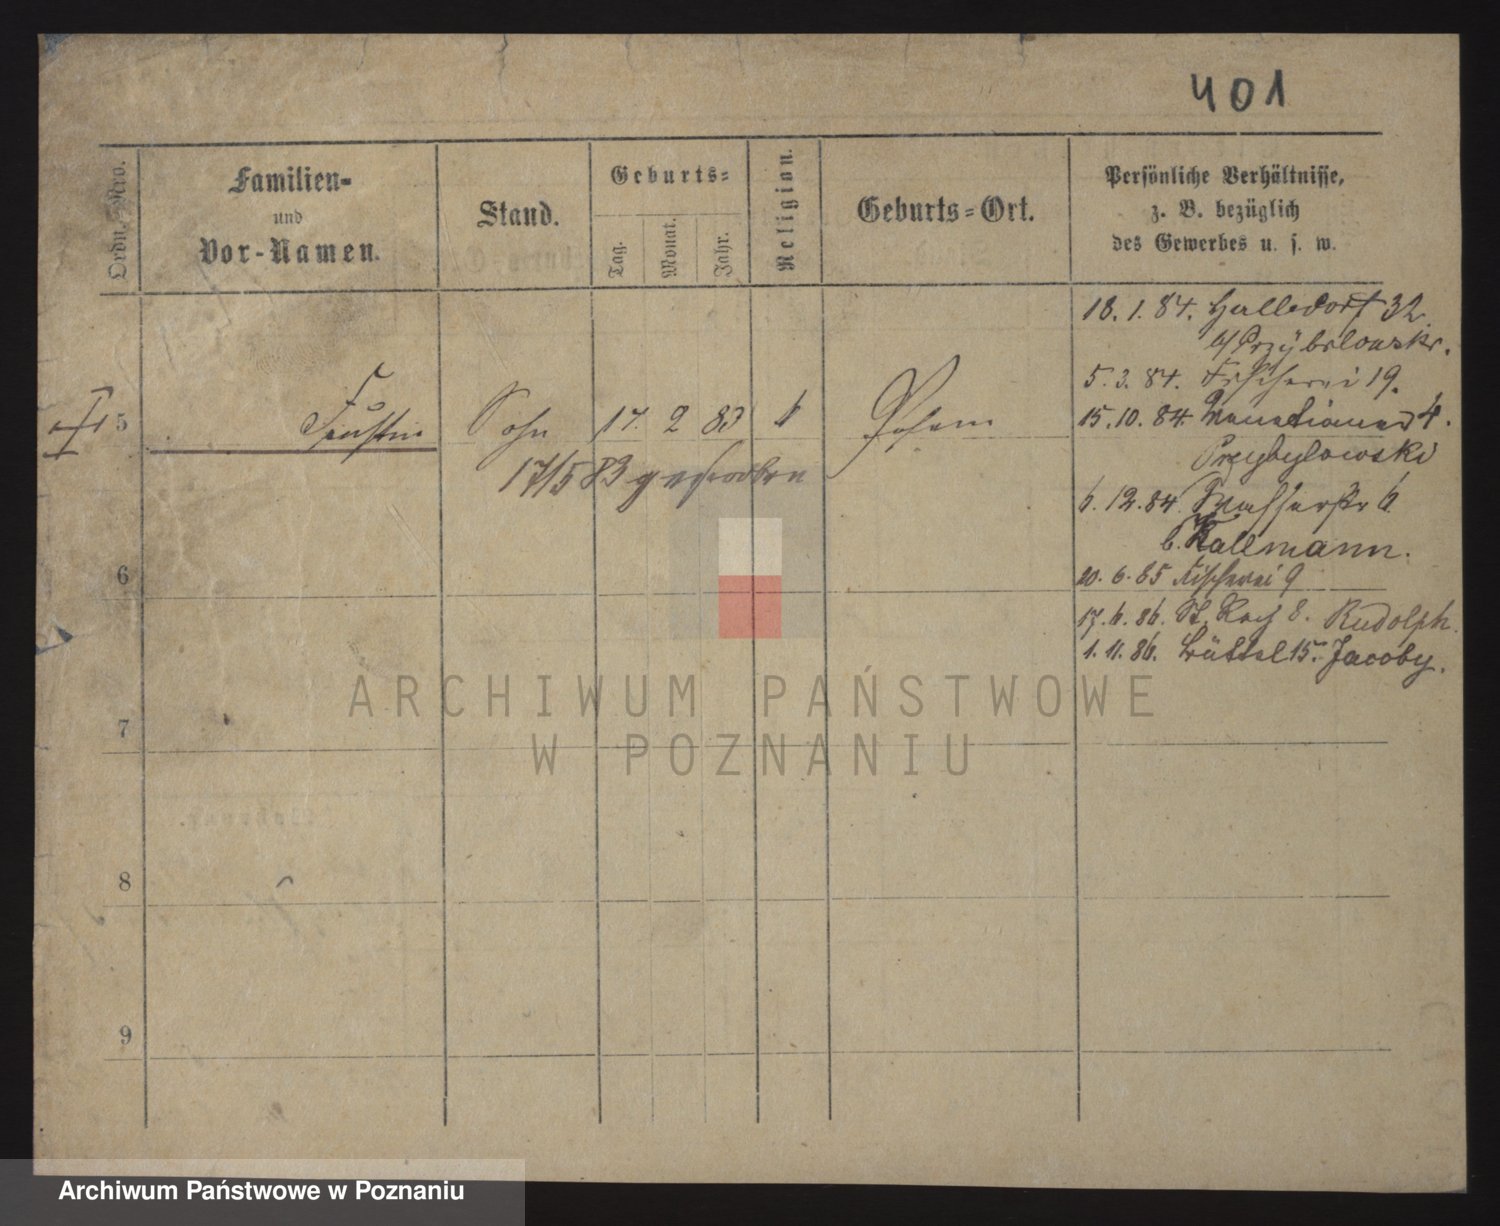 401
Ordn. Nro.
Familien-
und
Vor-Namen.
Stand.
Geburts-
Tag.
Monat.
Jahr.
Religion.
Geburts-Ort.
Persönliche Verhältnisse,
z. B. bezüglich
des Gewerbes u. s. w.
18. 1. 84. Halbdorf 32.
5. 3. 84. Fischerei 19.
5 Faustin Sohn 17. 2 83 k Posen
15. 10. 84. Venetianer 4.
Przybylowski
17/5 83 gestorben
6. 12. 84. Wasserstr 6
b. Kallmann.
6
20. 6. 85 Fischerei 9
17. 6. 86. St. Roch 8. Rudolph.
1. 11. 86. Büttel 15. Jacoby.
ARCHIWUM PAŃSTWOWE
W POZNANIU
7
8
9
Archiwum Państwowe w Poznaniu